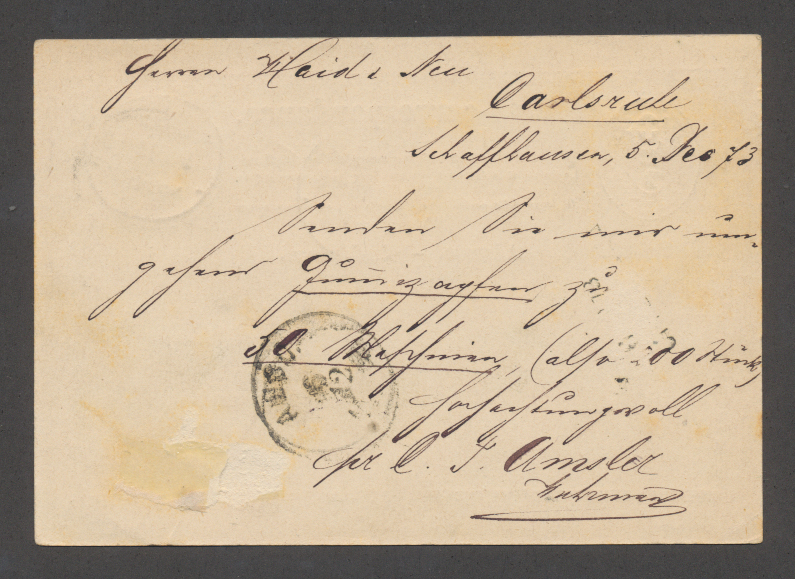 Herren Haid & Neu
Carlsruhe
Schaffhausen, 5. Dec 73
Senden Sie mir um-
gehend Gummizapfen zu
Maschinen, (also 00 Stück)
Hochachtungsvoll
pr C. F. Amsler